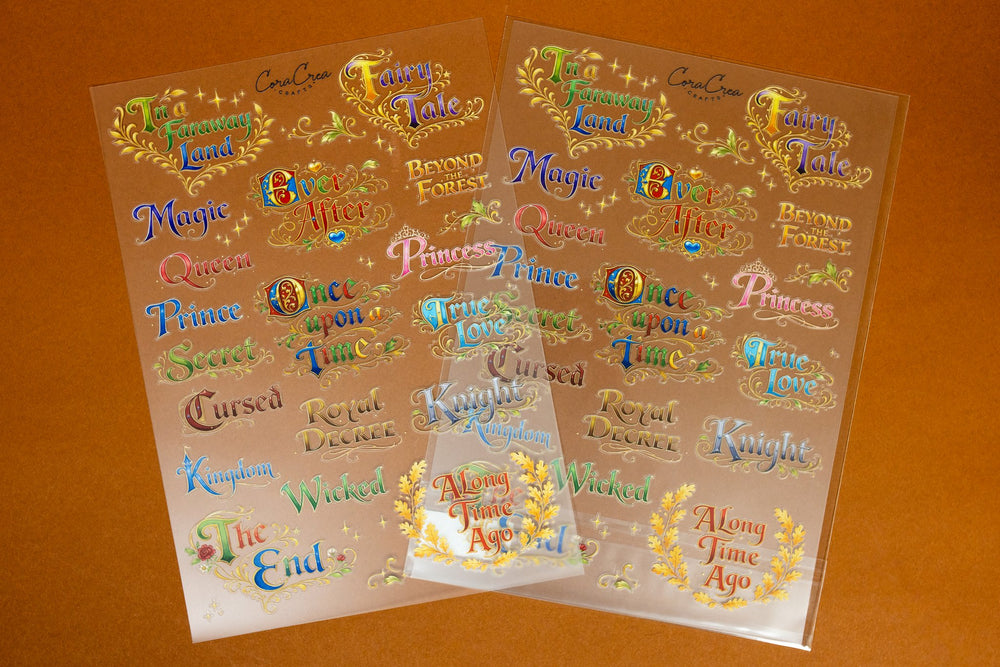 CoraCrea
CRAFTS
In a
Faraway
Land
Fairy
Tale
Magic
Ever
After
Beyond
the
Forest
Queen
Princess
Prince
Once
upon a
Time
True
Love
Secret
Cursed
Royal
Decree
Knight
Kingdom
Wicked
A Long
Time
Ago
The
End
CoraCrea
CRAFTS
In a
Faraway
Land
Fairy
Tale
Magic
Ever
After
Beyond
the
Forest
Queen
Princess
Prince
Once
upon a
Time
True
Love
Secret
Cursed
Royal
Decree
Knight
Kingdom
Wicked
A Long
Time
Ago
The
End